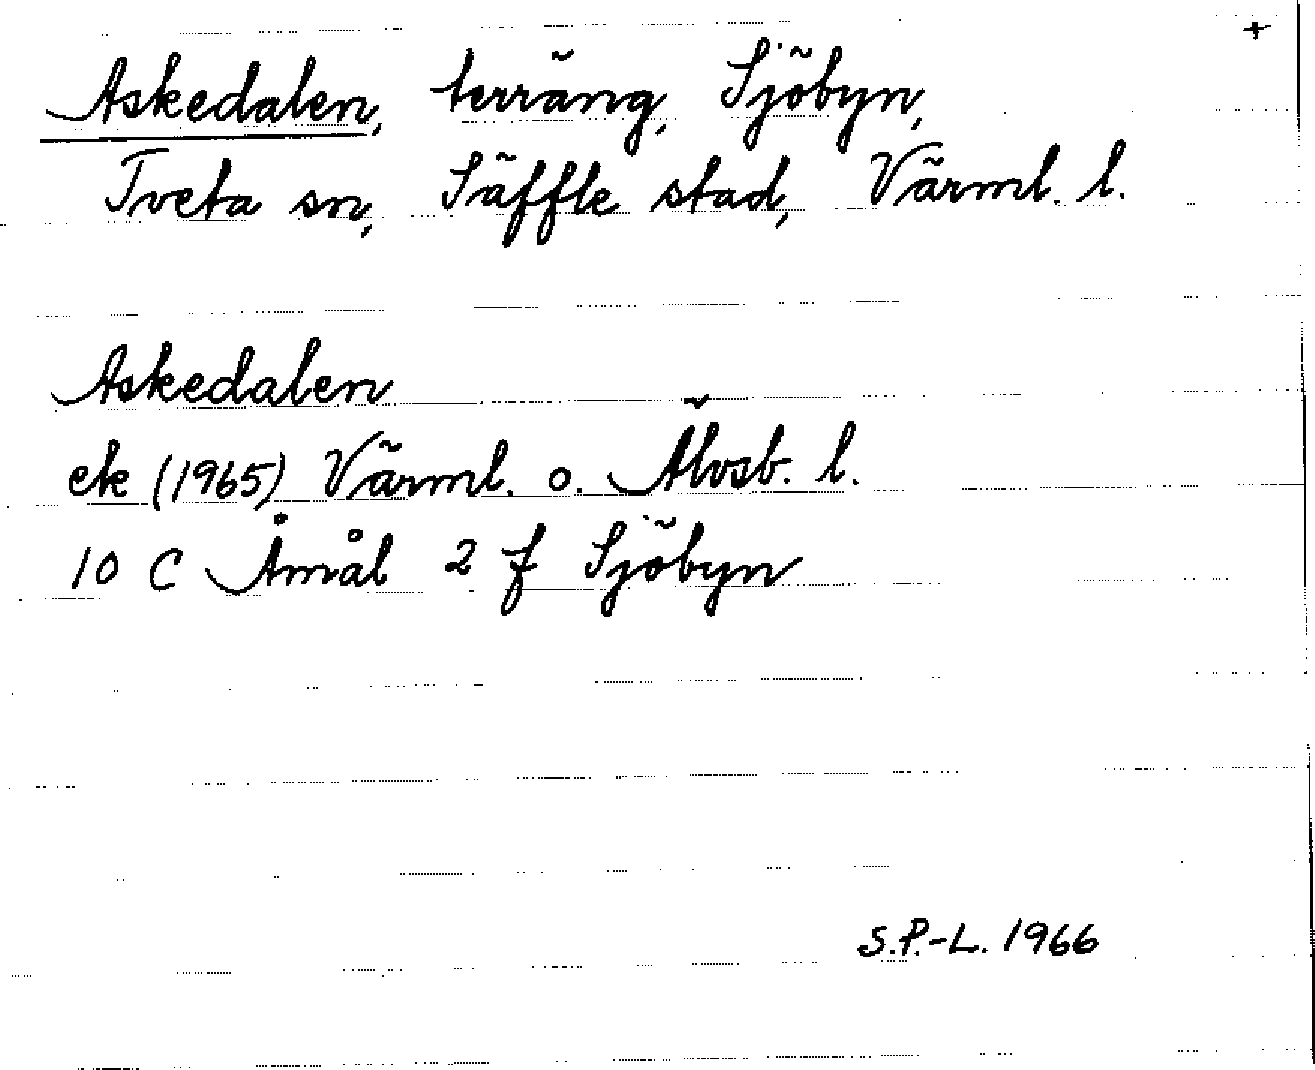 +
Askedalen, terräng, Sjöbyn,
Tveta sn, Säffle stad, Värml. l.
Askedalen
ek (1965) Värml. o. Älvsb. l.
10 C Åmål 2 f Sjöbyn
S.P.-L. 1966